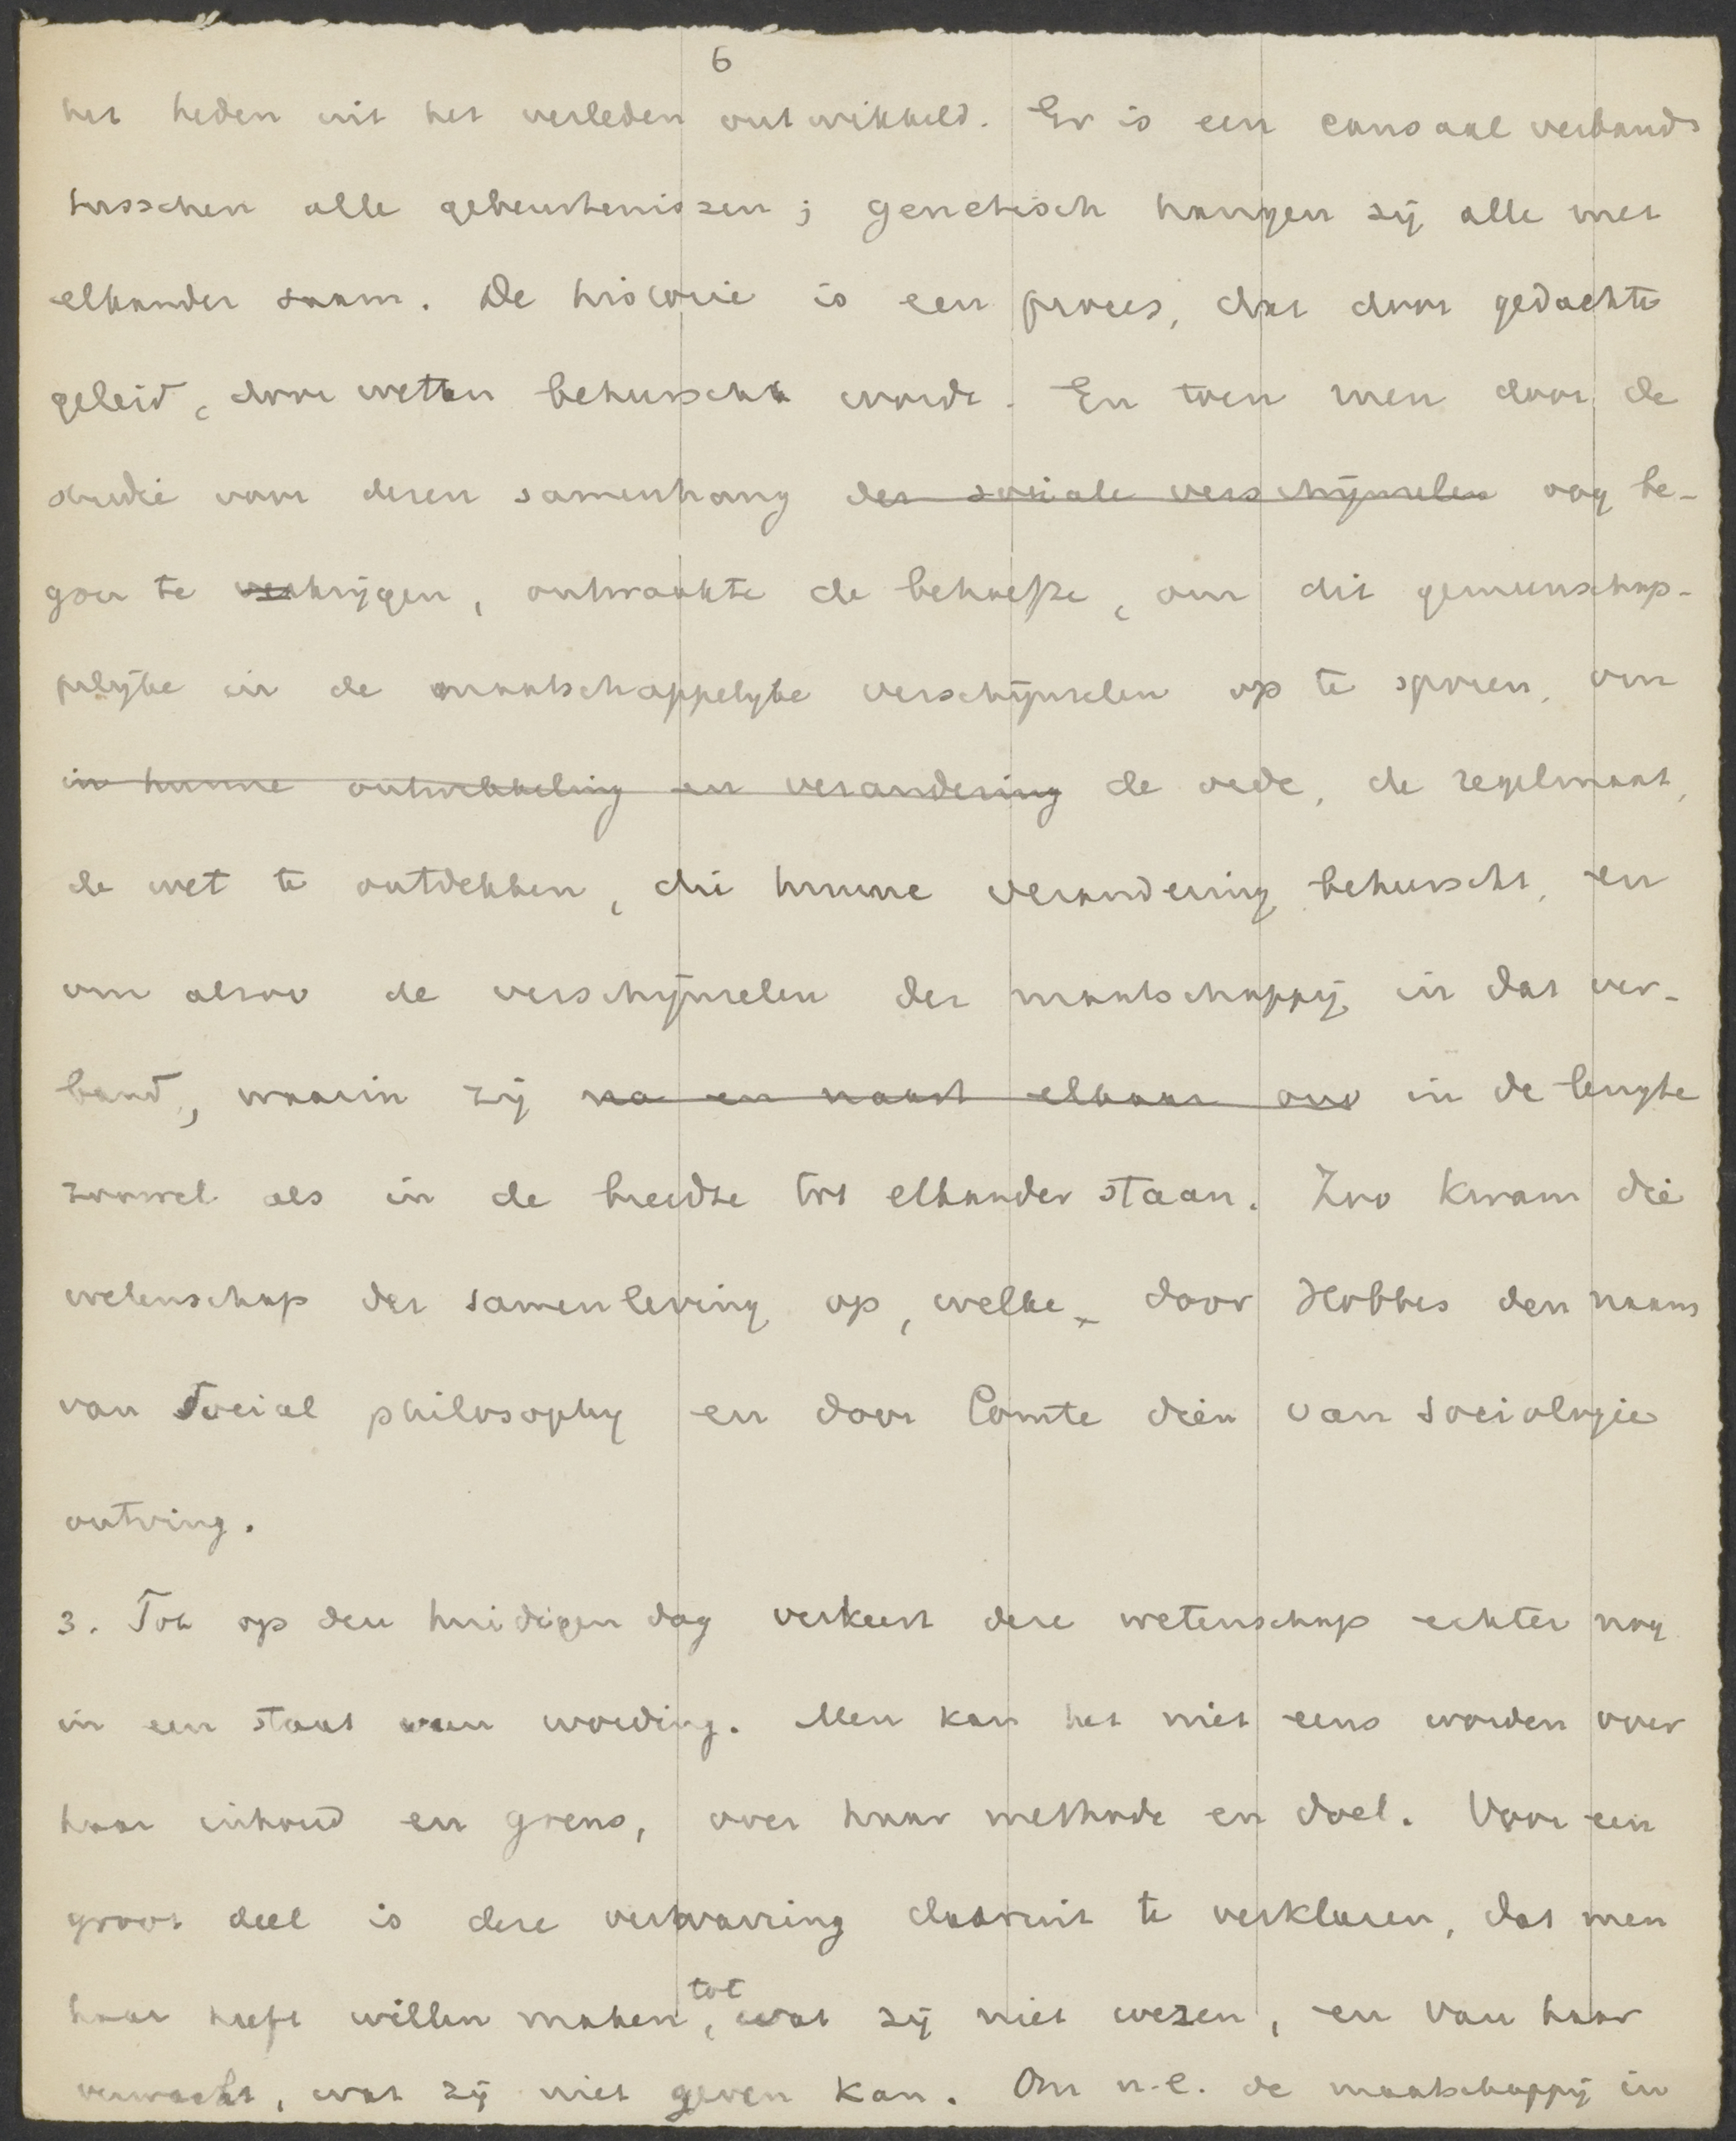 6
het heden uit het verleden ontwikkeld. Er is een causaal verband
tusschen alle gebeurtenissen; genetisch hangen zij alle met
elkander saam. De historie is een proces, dat door gedachte
geleid, door wetten beheerscht wordt. En toen men door de
studie voor dezen samenhang der sociale verschijnselen oog be-
gon te verkrijgen, ontwaakte de behoefte, om dit gemeenschap-
pelijke in de maatschappelijke verschijnselen op te sporen, om
in hunne ontwikkeling en verandering de orde, de regelmaat,
de wet te ontdekken, die hunne verandering beheerscht, en
om alzoo de verschijnselen der maatschappij in dat ver-
band, waarin zij na en naast elkaar ons in de lengte
zoowel als in de breedte tot elkander staan. Zoo kwam die
wetenschap der samenleving op, welke door Hobbes den naam
van Social philosophy en door Comte dien van sociologie
ontving.
3. Tot op den huidigen dag verkeert deze wetenschap echter nog
in een staat van wording. Men kan het niet eens worden over
haar inhoud en grens, over haar methode en doel. Voor een
groot deel is deze verwarring daaruit te verklaren, dat men
haar heeft willen maken, tot wat zij niet wezen, en van haar
verwacht, wat zij niet geven kan. Om n.l. de maatschappij in